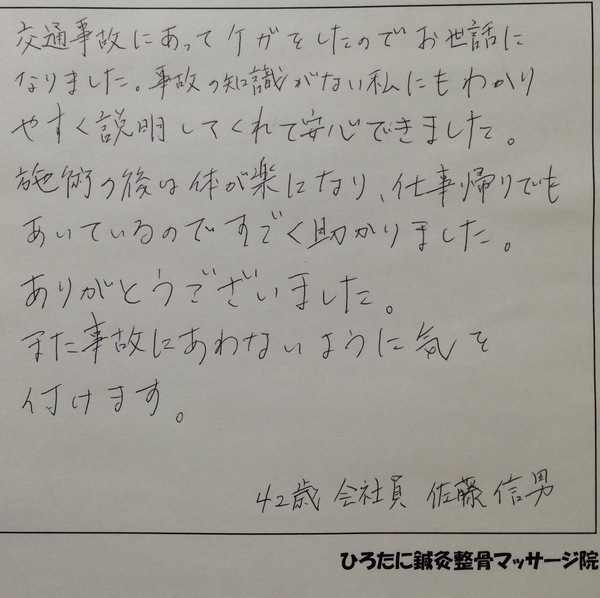 交通事故にあってケガをしたのでお世話に
なりました。事故の知識がない私にもわかり
やすく説明してくれて安心できました。
施術の後は体が楽になり、仕事帰りでも
あいているのですごく助かりました。
ありがとうございました。
また事故にあわないように気を
付けます。
42歳 会社員 佐藤信男
ひろたに鍼灸整骨マッサージ院